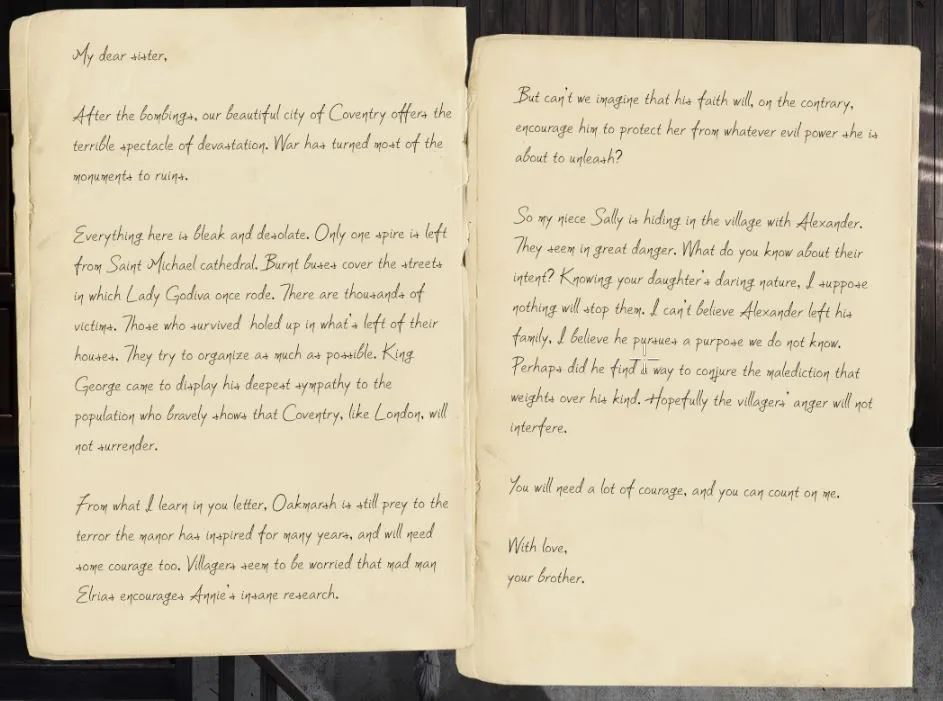 My dear sister,
After the bombings, our beautiful city of Coventry offers the
terrible spectacle of devastation. War has turned most of the
monuments to ruins.
Everything here is bleak and desolate. Only one spire is left
from Saint Michael cathedral. Burnt buses cover the streets
in which Lady Godiva once rode. There are thousands of
victims. Those who survived holed up in what's left of their
houses. They try to organize as much as possible. King
George came to display his deepest sympathy to the
population who bravely shows that Coventry, like London, will
not surrender.
From what I learn in you letter, Oakmarsh is still prey to the
terror the manor has inspired for many years, and will need
some courage too. Villagers seem to be worried that mad man
Elrias encourages Annie's insane research.
But can't we imagine that his faith will, on the contrary,
encourage him to protect her from whatever evil power she is
about to unleash?
So my niece Sally is hiding in the village with Alexander.
They seem in great danger. What do you know about their
intent? Knowing your daughter's daring nature, I suppose
nothing will stop them. I can't believe Alexander left his
family, I believe he pursues a purpose we do not know.
Perhaps did he find a way to conjure the malediction that
weights over his kind. Hopefully the villagers' anger will not
interfere.
You will need a lot of courage, and you can count on me.
With love,
your brother.